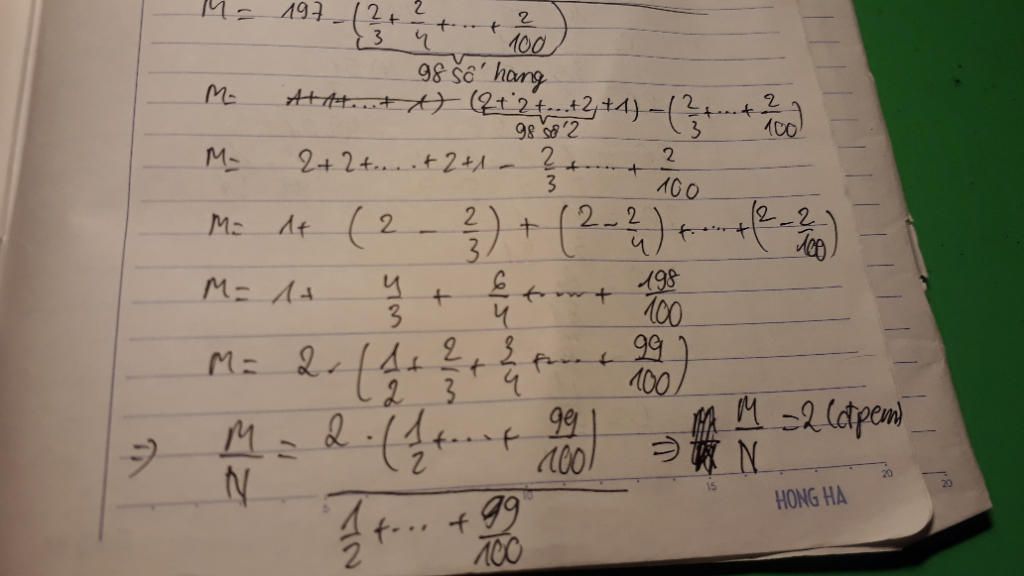 M = 197 - (2/3 + 2/4 + ... + 2/100)
98 số hạng
M = 1+1+...+1) - (2+2+...+2+1) - (2/3 + ... + 2/100)
98 số 2
M = 2+2+.....+2+1 - 2/3 + ..... + 2/100
M = 1 + (2 - 2/3) + (2 - 2/4) + ..... + (2 - 2/100)
M = 1 + 4/3 + 6/4 + ..... + 198/100
M = 2 . (1/2 + 2/3 + 3/4 + .... + 99/100)
=> M/N = 2 . (1/2 + .... + 99/100) / 1/2 + ... + 99/100 => M/N = 2 (đpcm)
5 10 15 20 20
HONG HA